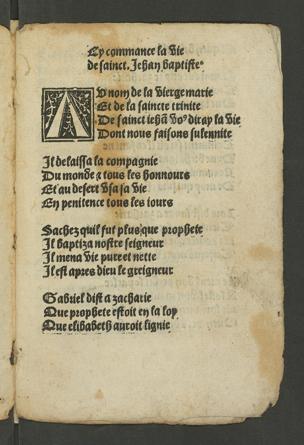 Cy commance la Vie
de sainct. Jehan baptiste.
AU nom de la vierge marie
Et de la saincte trinite
De sainct iehã vo9 diray la vie
Dont nous faisons sulennite
Il delaissa la compagnie
Du monde & tous les honnours
Et au desert vsa sa vie
En penitence tous les iours
Sachez quil fut plus que prophete
Il baptiza nostre seigneur
Il mena vie pure et nette
Il est apres dieu le greigneur
Gabriel dist a zacharie
Que prophete estoit en la loy
Que elizabeth auroit lignie